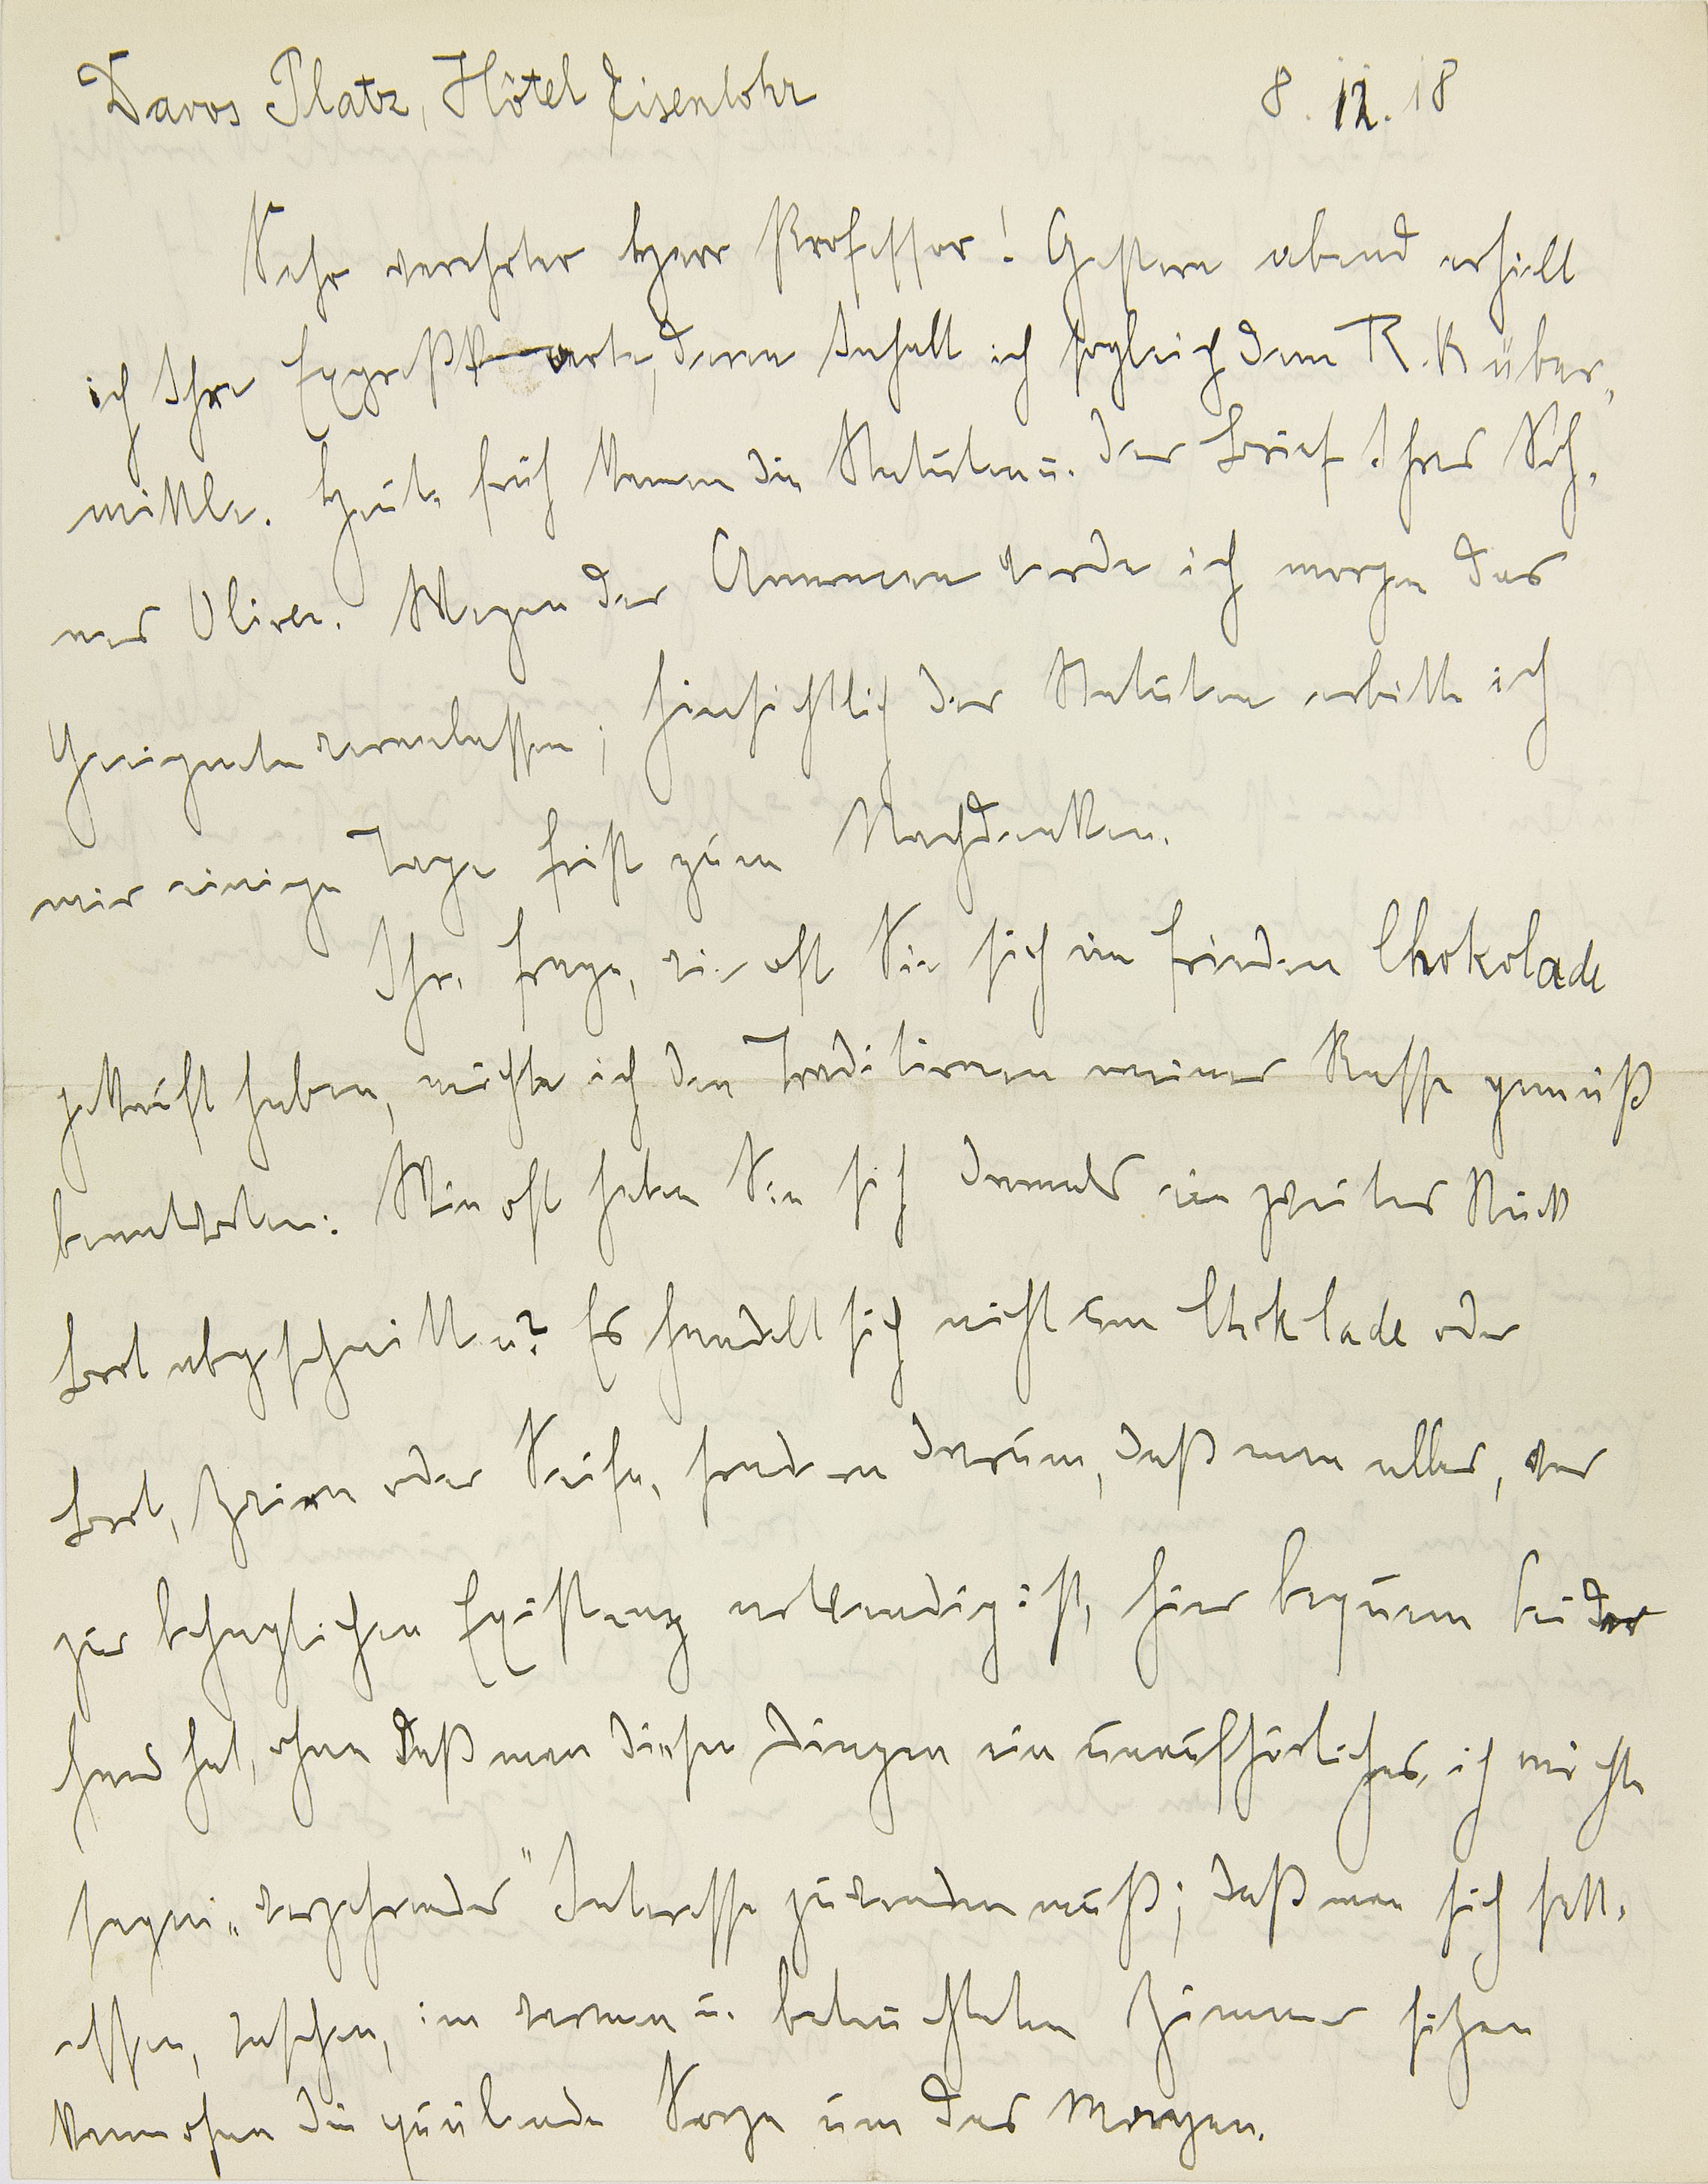 Davos Platz, Hôtel Eisenlohr 8. 12. 18
Sehr verehrter Herr Professor! Gestern abend erhielt
ich Ihre Expreßkarte, deren Inhalt ich sogleich dem R. K über-
mittle. Heute früh kamen die Statuten u. der Brief Ihres Soh-
nes Oliver. Wegen der Annoncen werde ich morgen das
Geeignete veranlassen; hinsichtlich der Statuten erbitte ich
mir einige Tage Frist zum Nachdenken.
Ihre Frage, wie oft Sie sich im Frieden Chokolade
gekauft haben, möchte ich den Traditionen meiner Rasse gemäß
beantworten: Wie oft haben Sie sich damals ein zweites Stück
Brot abgeschnitten? Es handelt sich nicht um Choklade oder
Brot, Zwirn oder Seife, sondern darum, daß man alles, was
zur behaglichen Existenz notwendig ist, hier bequem bei der
Hand hat, ohne daß man diesen Dingen ein unaufhörliches, ich möchte
sagen „verzehrendes" Interesse zuwenden muß; daß man sich satt-
essen, waschen, im warmen u. beleuchteten Zimmer sitzen
kann ohne die quälende Sorge um das Morgen.